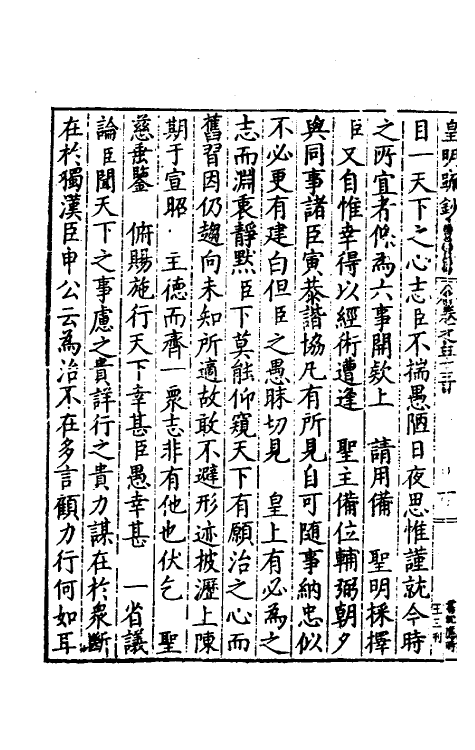 皇明疏鈔
目一天下之心志臣不揣愚陋日夜思惟謹就今時
之所宜者條爲六事開欵上　請用備　聖明採擇
臣又自惟幸得以經術遭逢　聖主備位輔弼朝夕
與同事諸臣寅恭諧協凡有所見自可隨事納忠似
不必更有建白但臣之愚昧切見　皇上有必爲之
志而淵衷靜默臣下莫能仰窺天下有願治之心而
舊習因仍趨向未知所適故敢不避形迹披瀝上陳
期于宣昭　主德而齊一衆志非有他也伏乞　聖
慈垂鑒　俯賜施行天下幸甚臣愚幸甚　一省議
論臣聞天下之事慮之貴詳行之貴力謀在於衆斷
在於獨漢臣申公云爲治不在多言顧力行何如耳